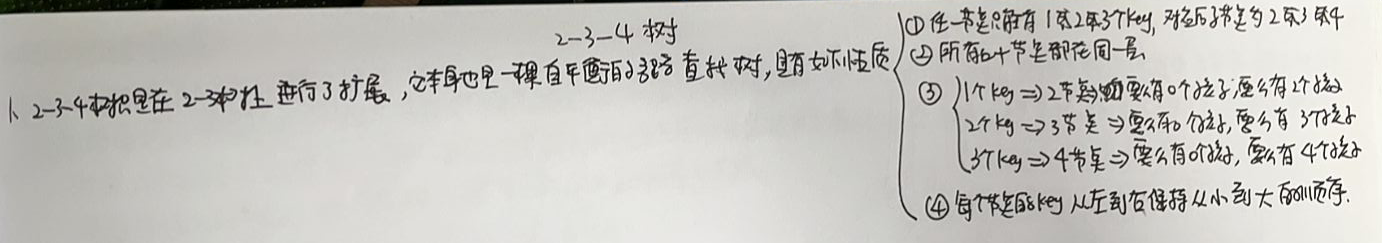 2-3-4树
1、2-3-4树是在2-3树上进行了扩展,它本身也是一棵自平衡的多路查找树,具有如下性质
①任一节点只能有1或2或3个key,对应子节点为2或3或4
②所有叶子节点都在同一层
③1个key⇒2节点⇒要么有0个孩子,要么有2个孩子
2个key⇒3节点⇒要么有0个孩子,要么有3个孩子
3个key⇒4节点⇒要么有0个孩子,要么有4个孩子
④每个节点的key从左到右保持从小到大的顺序.